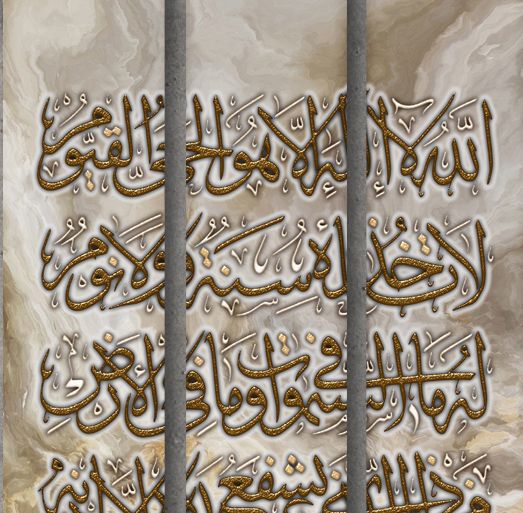 اَللّٰهُ لَا إِلٰهَ إِلَّا هُوَ الْحَيُّ الْقَيُّومُ
لَا تَأْخُذُهُ سِنَةٌ وَلَا نَوْمٌ
لَهُ مَا فِي السَّمٰوَاتِ وَمَا فِي الْأَرْضِ
مَنْ ذَا الَّذِي يَشْفَعُ